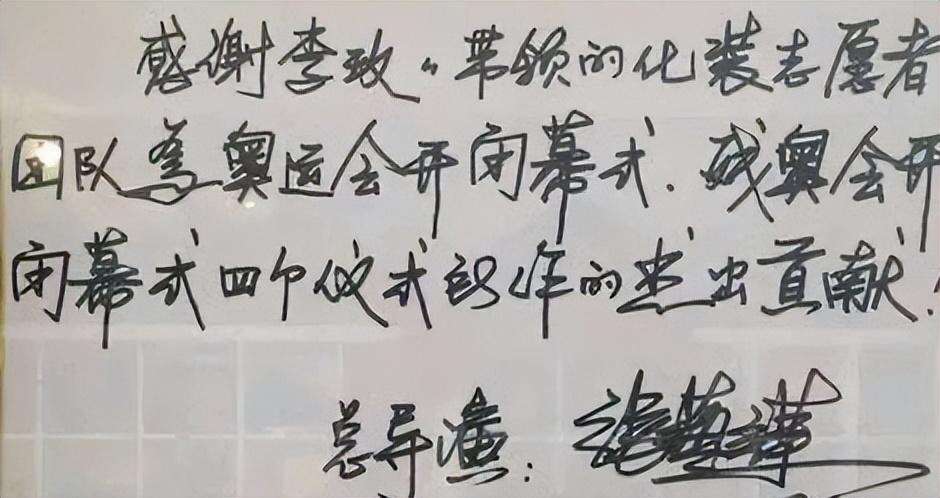 感谢李致，带领的化装志愿者
团队为奥运会开闭幕式.残奥会开
闭幕式四个仪式所作的杰出贡献！
总导演：张艺谋